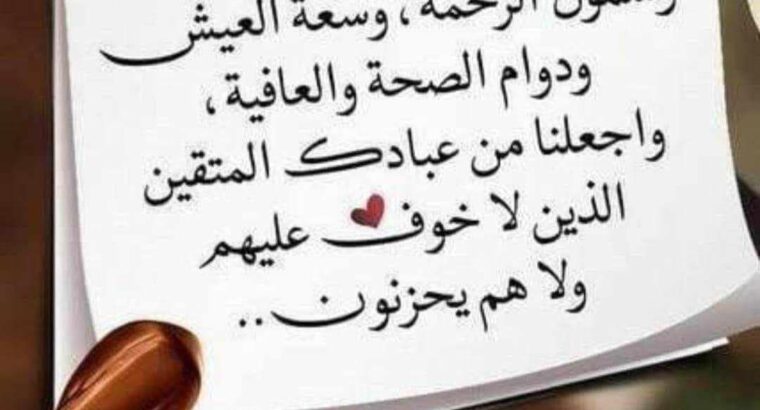 وشمول الرحمة، وسعة العيش
ودوام الصحة والعافية،
واجعلنا من عبادك المتقين
الذين لا خوف عليهم
ولا هم يحزنون..